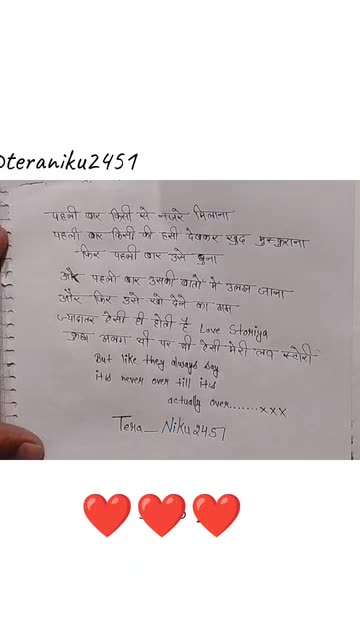 @teraniku2451
पहली बार किसी से नजरे मिलाना
पहली बार किसी की हसी देखकर खुद मुस्कुराना
फिर पहली बार उसे छुना
और पहली बार उसकी बातो मे उलझ जाना
और फिर उसे खो देने का गम
ज्यादातर ऐसी ही होती है Love Storiya
कुछ अलग थी पर थी ऐसी मेरी लव स्टोरी
But like they always say
it's never over till it's
actually over.......xxx
Tera_Niku2451